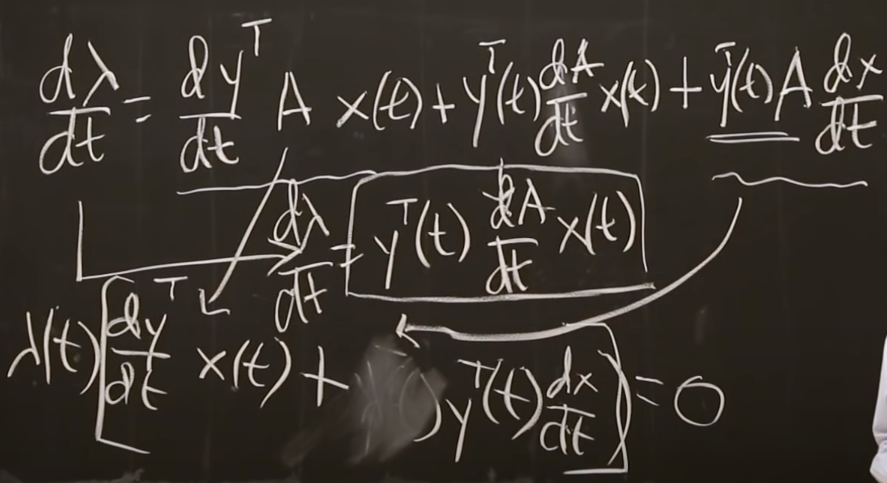 dλ/dt = dy^T/dt A x(t) + y^T(t) dA/dt x(t) + y^T(t) A dx/dt
dλ/dt = y^T(t) dA/dt x(t)
λ(t) [dy^T/dt x(t) + y^T(t) dx/dt] = 0